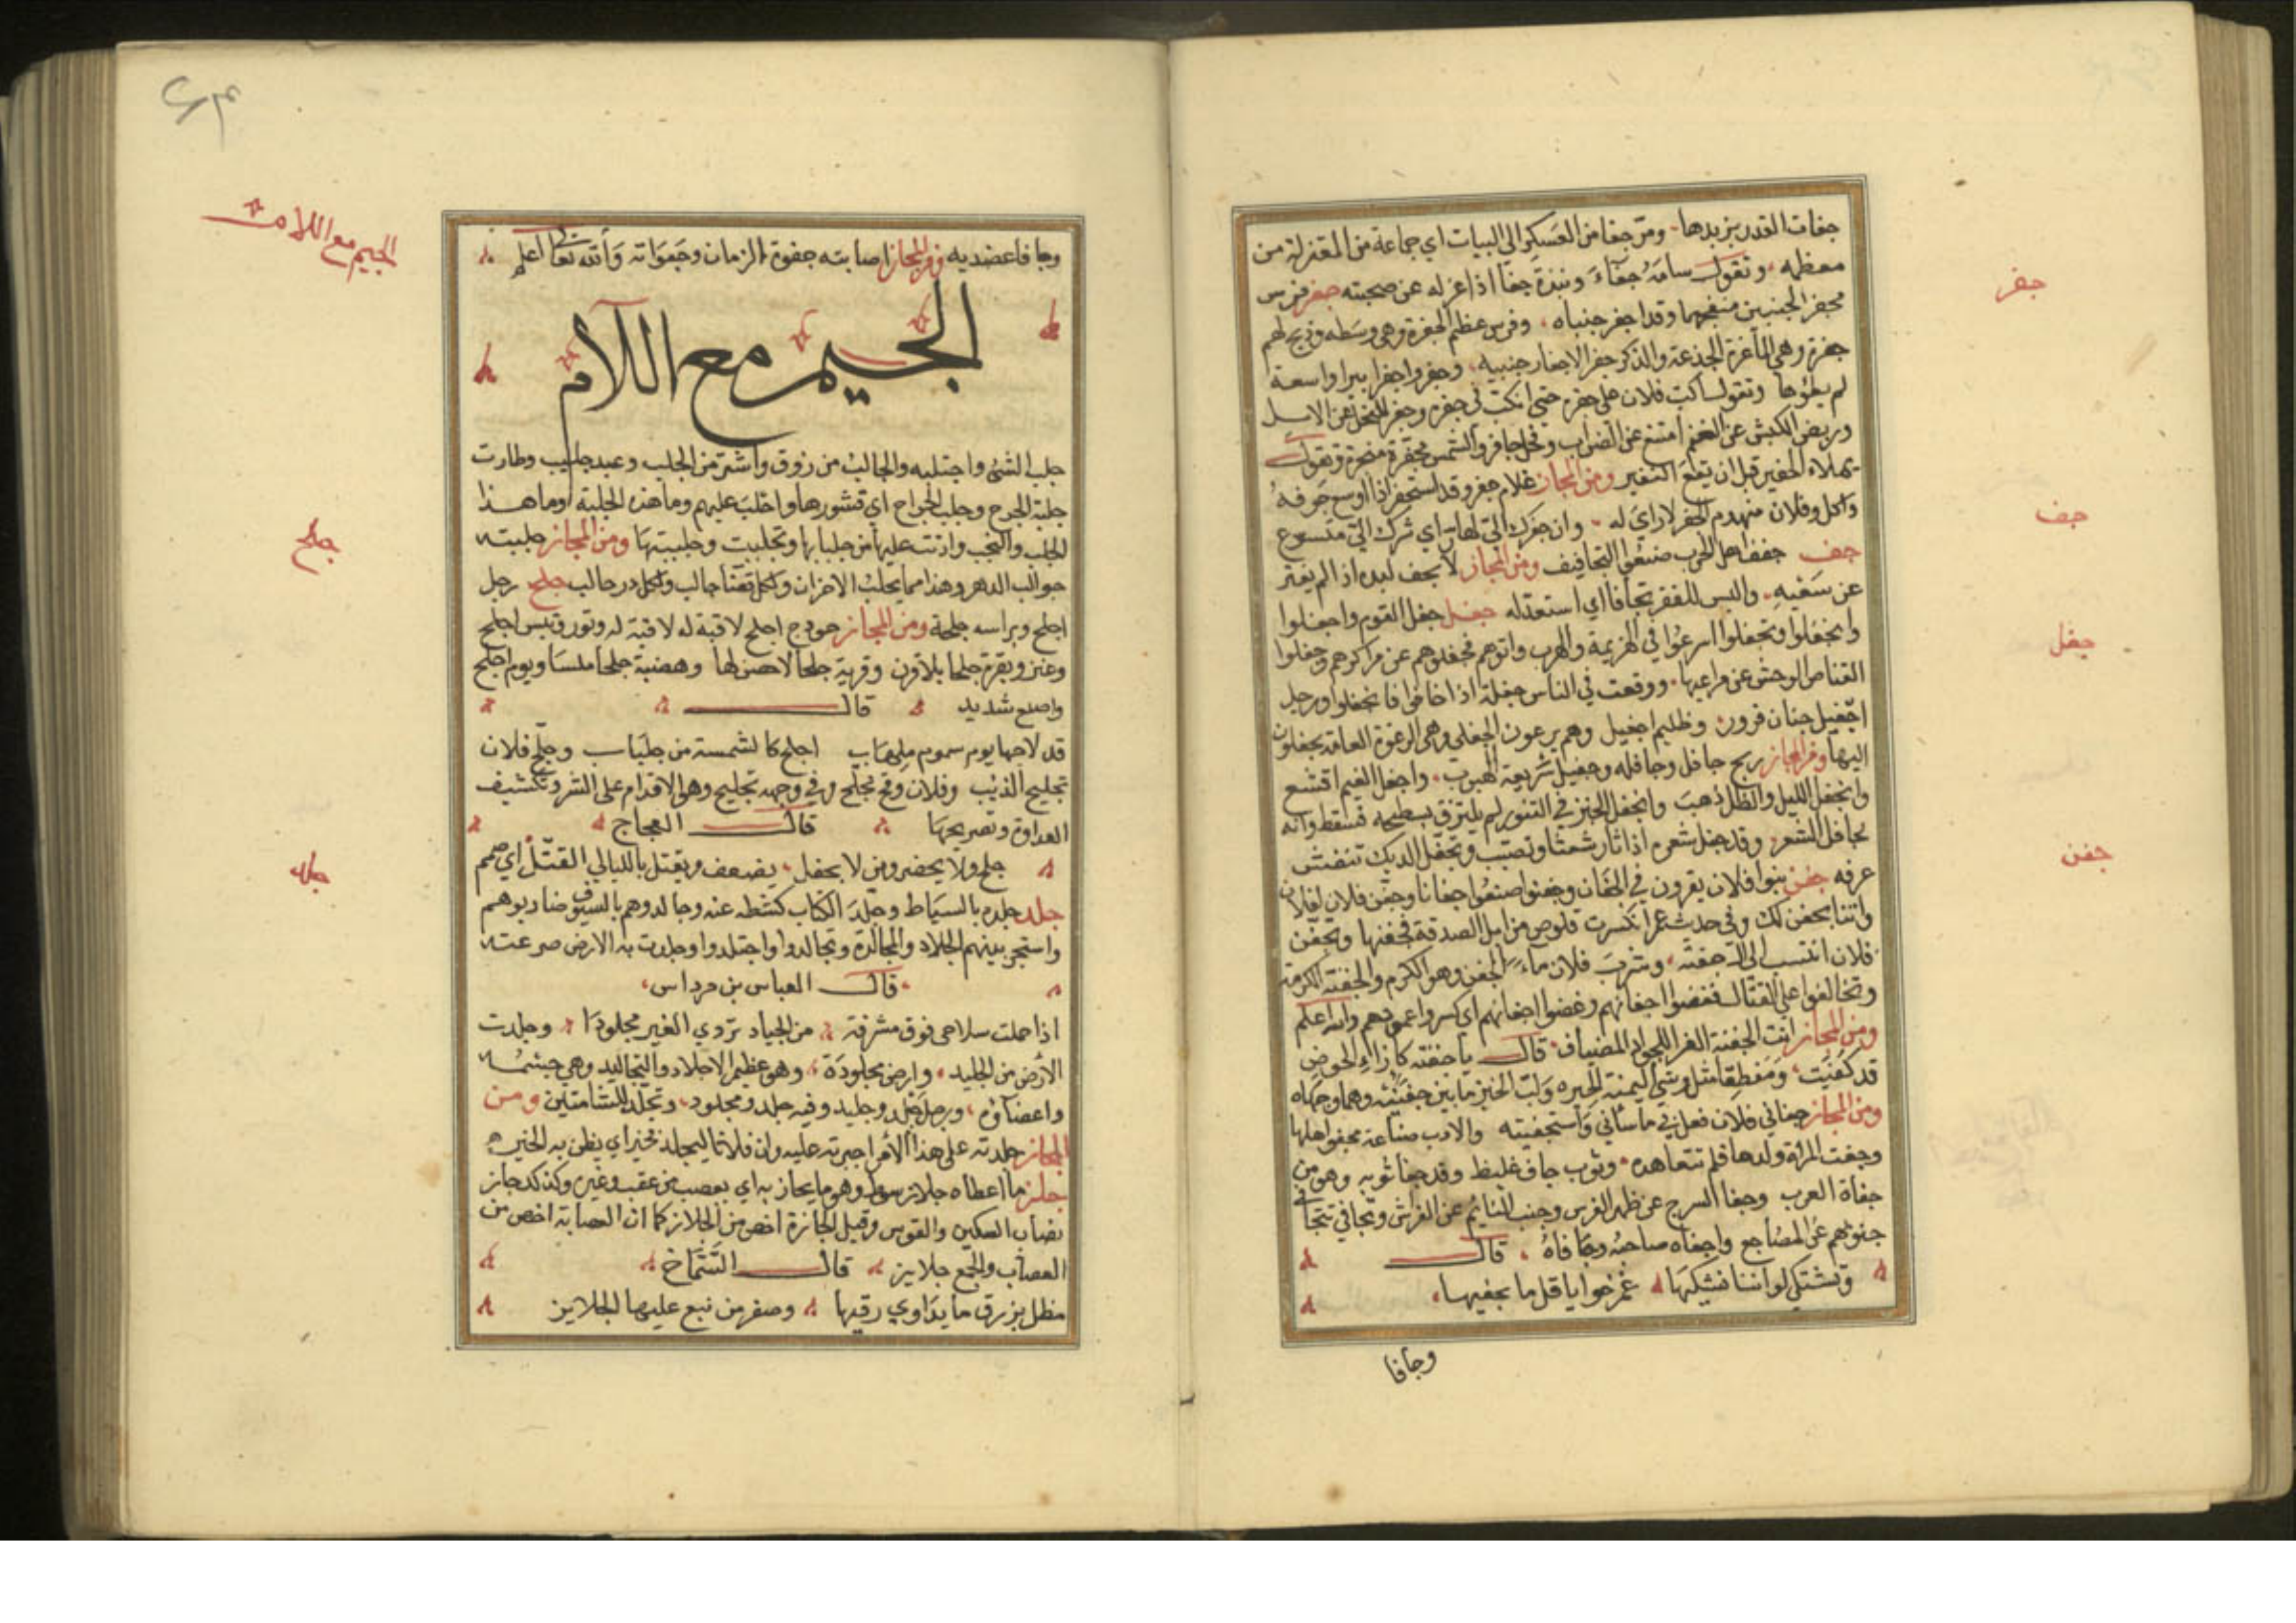 جفات القدر بزبدها ومر جفا من العسكر الى البيات اي جماعة معتزلة من
معظمه وتقول سامه جفاء ونبذه جفا اذا عزله عن صحبته جفر فرس
مجفر الجنبين منفجهما وقد اجفر جنباه وفرس عظيم الجفرة وهي وسطه وذبح لهم
جفرة وهي الماعزة الجذعة والذكر جفر لاجفار جنبيه وجفر واجفر بيرا واسعة
لم يطووها وتقول اكب فلان على جفره حتى انكب في جفره وجفر الفحل عن الابل
وربض الكبش عن الغنم امتنع عن الضراب وفحل جافر والشمس مجفرة وتقول
قبل ان يقع النفير ومن المجاز غلام جفر وقد استجفر اذا اوسع جوفه
واكل وفلان منهدم الجفر لا راي له وان جفرك الي لهار اي شرك الي متسرع
جف جفف اهل الحرب صنعوا التجافيف ومن المجاز لا يجف لبده اذا لم يفتر
عن سعيه والبس للفقر تجفافا اي استعد له جفل جفل القوم واجفلوا
وانجفلوا وتجفلوا اسرعوا في الهزيمة والهرب واتوهم فجفلوهم عن مراكزهم وجفلوا
القناص الوحش عن مراعيها ووقعت في الناس جفلة اذا خافوا فانجفلوا ورجل
اجفيل جبان فرور وظليم اجفيل وهم يدعون الجفلى وهي الدعوة العامة يجفلون
اليها ومن المجاز ريح جافل وجافله وجفيل سريعة الهبوب واجفل الغيم اقشع
وانجفل الليل والظل ذهب وانجفل الخبز في التنور لم يلتزق بسطحه فسقط وانه
لجافل الشعر وقد جفل شعره اذا ثار شعثا وتنصب وتجفل الديك تنفش
عرفه جفن بنوا فلان يقرون في الجفان وجفنوا صنعوا جفانا وجفن فلان لفلان
واتنا بجفن لك وفي حديث عمر انكسرت قلوص من ابل الصدقة فجفنها وتجفن
فلان انتسب الى ال جفنة وشرب فلان ماء الجفن وهو الكرم والجفنة الكرمة
وتخالفوا على القتال فغضوا اجفانهم وغضوا اجفانهم اي كسروا اغمدتهم والله اعلم
ومن المجاز انت الجفنة الغرا للجواد المضياف قال يا جفنة كازاء الحوض
قد كفئت ومنطقا مثل وشي اليمنة الحبره ولب الخبز ما بين جفنتيه وهما وجهاه
ومن المجاز جفاني فلان فعل بي ما ساءني واستجفيته والادب صناعة مجفو اهلها
وجفت المراة ولدها فلم تتعاهده وثوب جاف غليظ وقد جفا ثوبه وهو من
جفاة العرب وجفا السرج عن ظهر الفرس وجنب النائم عن الفراش وتجافى تتجافى
جنوبهم عن المضاجع واجفاه صاحبه وجافاه قال
وتشتكي لو اننا نشكيها غمز حوايا قل ما نجفيها
وجافا
جفر
جف
جفل
جفن
وجافا عضديه ومن المجاز اصابته جفوة الزمان وجفواته والله تعالى اعلم
الجيم مع اللام
جلب الشئ واجتلبه والجالب مرزوق واشتر من الجلب وعبد جليب وطارت
جلبة الجرح وجلب الجراح اي قشورها واجلب عليهم وما هذه الجلبة وما هذا
الجلب واللجب وادنت عليها من جلبابها وتجلببت وجلببتها ومن المجاز جلبته
جوالب الدهر وهذا مما يجلب الاحزان ولكل قضا جالب ولكل در حالب جلح رجل
اجلح وبراسه جلحة ومن المجاز هودج اجلح لا قبة له وتور قبس اجلح
وعنز وبقرة جلحا بلا قرن وقرية جلحا لا حصن لها وهضبة جلحا ملسا ويوم اجلح
واصلع شديد قال
قد لاحها يوم سموم ملهاب اجلح كالشمسة من جلباب وجلح فلان
تجليح الذئب وفلان وقح مجلح وفي وجهه تجليح وهو الاقدام على الشر وتكشيف
العداوة وتصريحها قال العجاج
جلح ولا يحضر ومن لا يحفل يضعف ويقتل بالليالي القتل اي صمم
جلد جلده بالسياط وجلد الكتاب كشطه عنه وجالدوهم بالسيوف ضاربوهم
واستحر بينهم الجلاد والمجالدة وتجالدوا واجتلدوا وجلدت به الارض صرعته
قال العباس بن مرداس
اذا حملت سلاحى فوق مشرفة من الجياد تردي الغير مجلودا وجلدت
الارض من الجليد وارض مجلودة وهو عظيم الاجلاد والتجاليد وهي جسمه
واعضاؤه ورجل جلد وجليد وفيه جلد ومجلود وتجلد للشامتين ومن
المجاز جلدته على هذا الامر اجبرته عليه وان فلانا ليجلد بخير اي يظن به الخير
جلز ما اعطاه جلاز سوط وهو ما يجلز به اي يعصب من عقب وغيره وكذلك جلاز
نصاب السكين والقوس وقيل الجلازة اخص من الجلاز كما ان العصابة اخص من
العصاب والجمع جلايز قال الشماخ
مطل بزرق ما يداوي رقيها وصفر من نبع عليها الجلايز
الجيم مع اللام
جلح
جلد